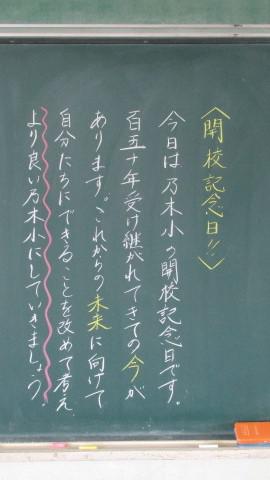 〈開校記念日!!〉
今日は乃木小の開校記念日です。
百五十年受け継がれてきての今が
あります。これからの未来に向けて
自分たちにできることを改めて考え、
より良い乃木小にしていきましょう。